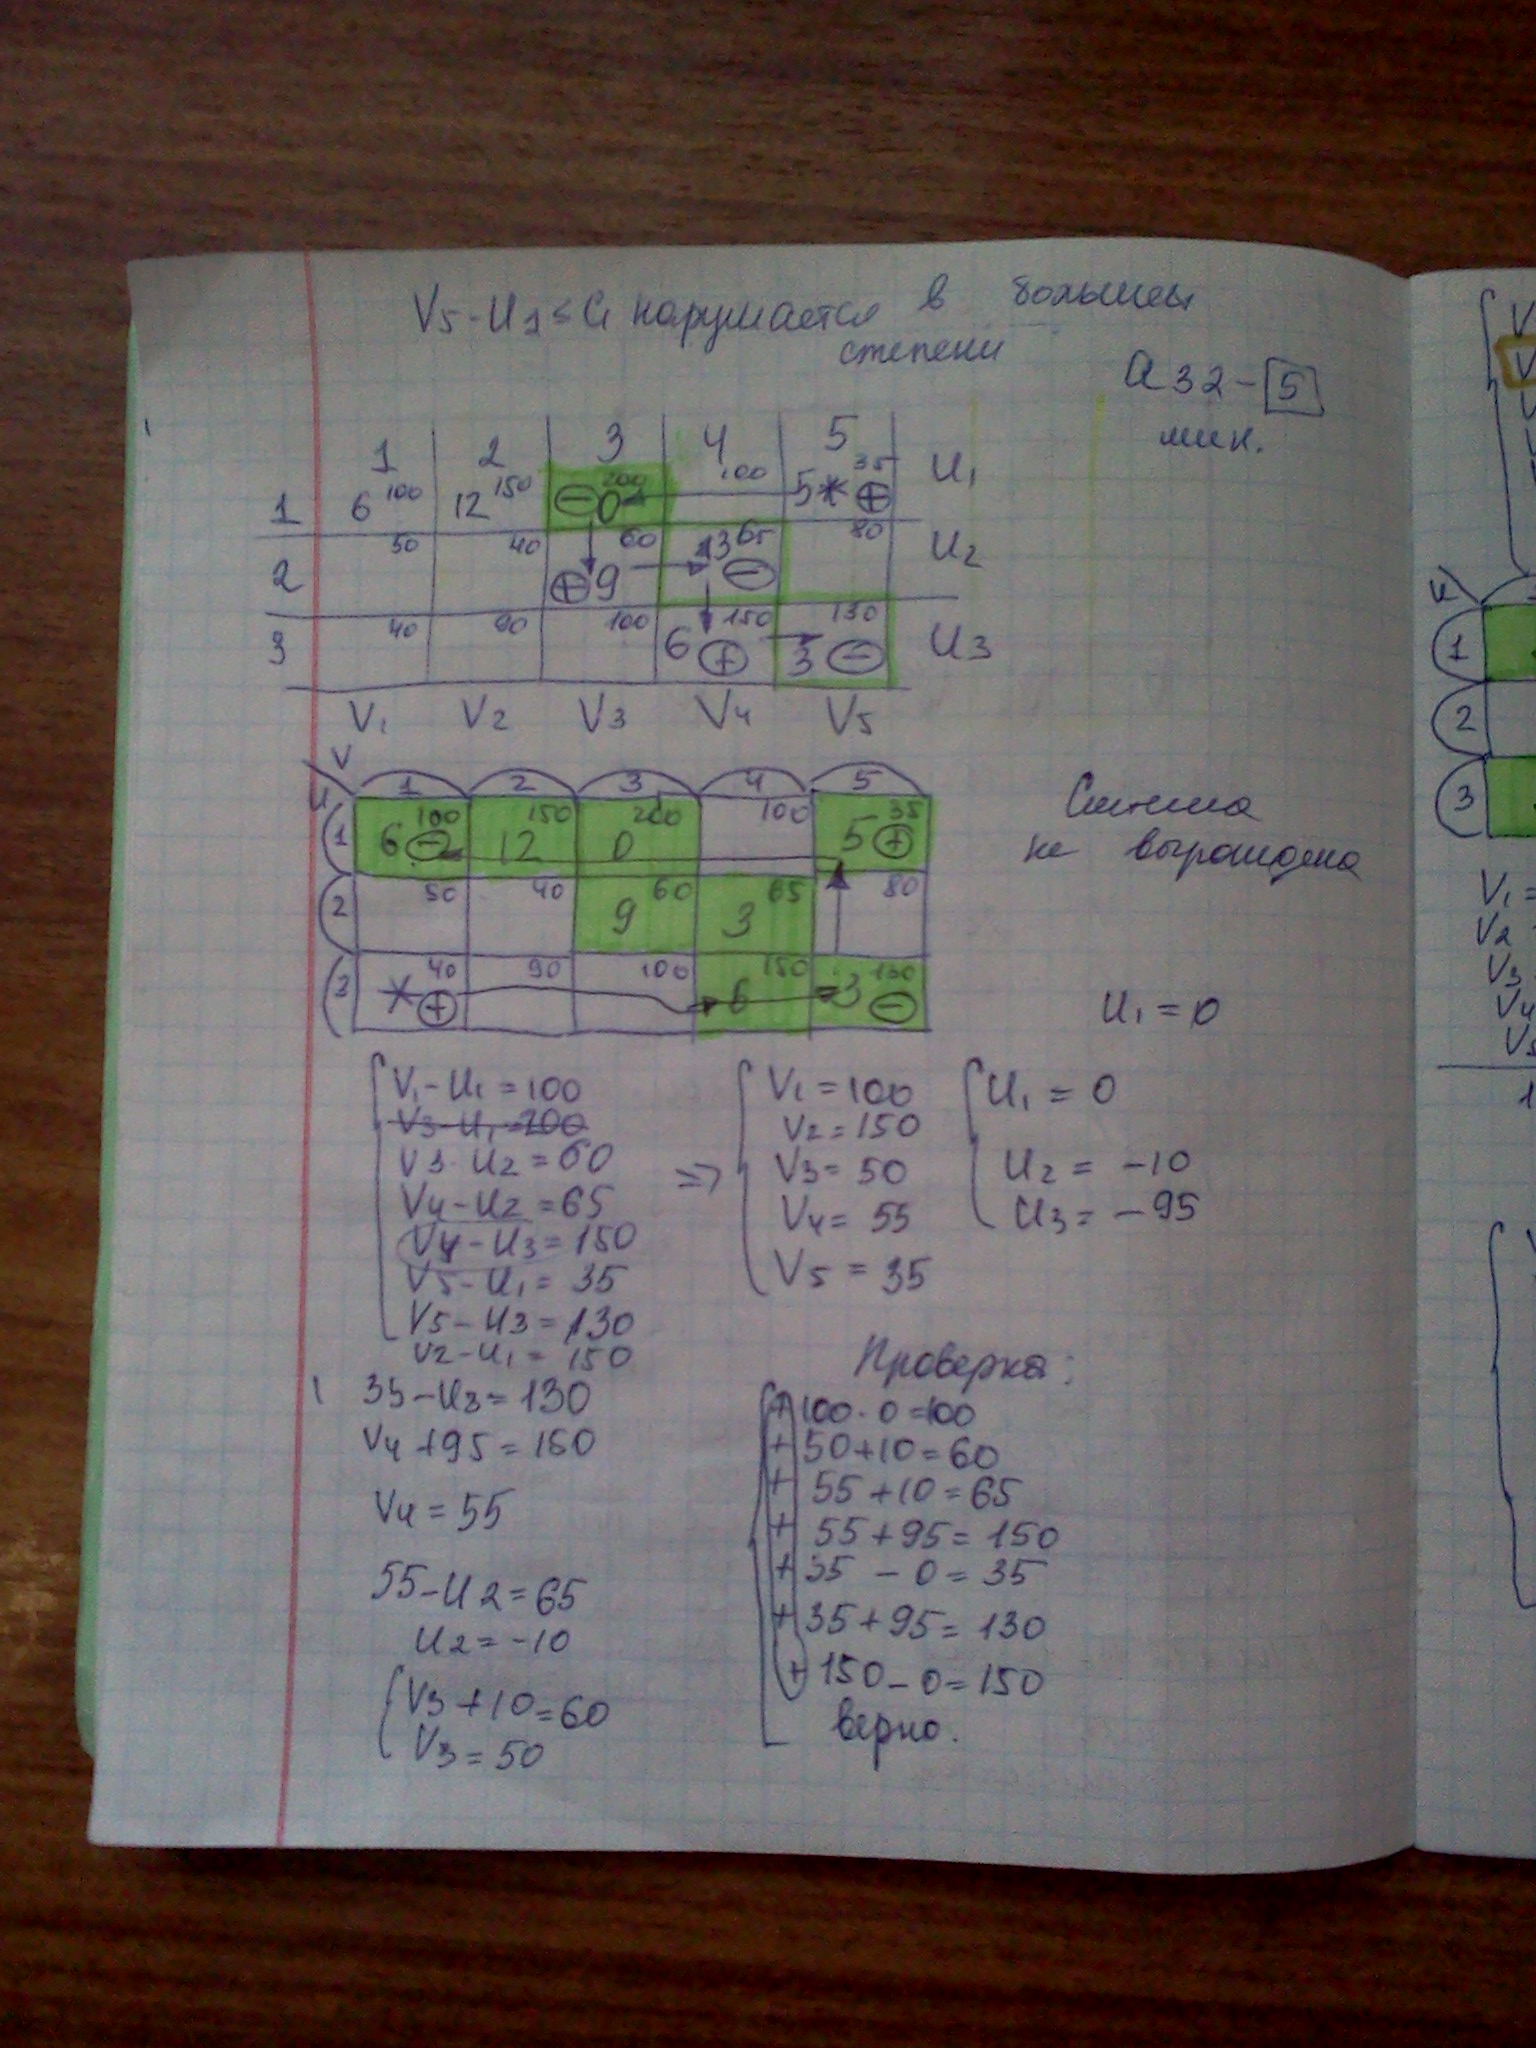 V5 - U1 ≤ C1 нарушается в большей
степени
a32 - 5
мин.
1 2 3 4 5
1 6 100 12 150 ⊖ 0 200 100 5* 35 ⊕ U1
2 50 40 60 ⊕ 9 13 65 ⊖ 80 U2
3 40 90 100 6 150 ⊕ 3 130 ⊖ U3
V1 V2 V3 V4 V5
V
U 1 2 3 4 5
1 6 ⊖ 100 12 150 0 200 100 5 ⊕ 35
2 50 40 9 60 3 65 80
3 * ⊕ 40 90 100 6 150 3 130 ⊖
Система
не вырождена
U1 = 0
V1 - U1 = 100
V3 - U1 = 200
V3 - U2 = 60
V4 - U2 = 65
V4 - U3 = 150
V5 - U1 = 35
V5 - U3 = 130
V2 - U1 = 150
=>
V1 = 100
V2 = 150
V3 = 50
V4 = 55
V5 = 35
U1 = 0
U2 = -10
U3 = -95
35 - U3 = 130
V4 + 95 = 150
V4 = 55
55 - U2 = 65
U2 = -10
V3 + 10 = 60
V3 = 50
Проверка:
+ 100 - 0 = 100
+ 50 + 10 = 60
+ 55 + 10 = 65
+ 55 + 95 = 150
+ 35 - 0 = 35
+ 35 + 95 = 130
+ 150 - 0 = 150
верно.
V
V
U
1
2
3
V1 =
V2
V3
V4
V5
1